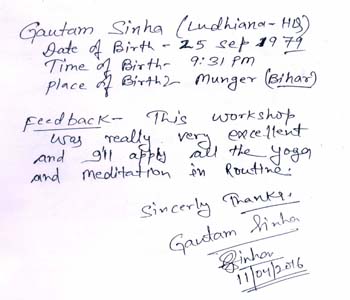 Gautam Sinha (Ludhiana-HQ)
Date of Birth - 25 sep 1979
Time of Birth- 9:31 PM
place of Birth2 Munger (Bihar)
Feedback- This workshop
was really very excellent
and I'll apply all the yoga
and meditation in Routine.
Sincerly Thanks.
Gautam Sinha
Sinha
11/04/2016